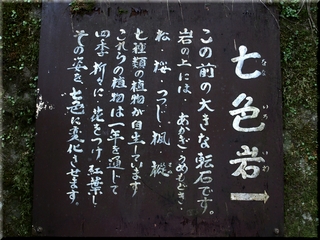 七色岩
この前の大きな転石です。
岩の上には、あかぎ、うめもどき、
松、桜、つつじ、楓、樅、
七種類の植物が自生しています
これらの植物は一年を通して
四季折々に花をつけ、紅葉し
その姿を七色に変化させます。